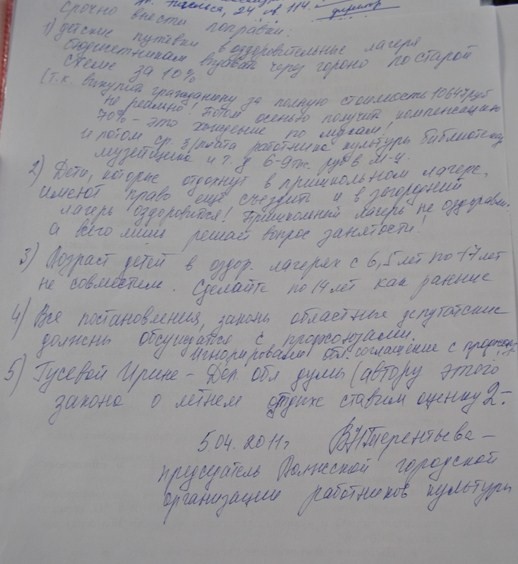 24 оф 114.
срочно внести поправки:
1) детские путёвки в оздоровительные лагеря
бюджетникам выдавать через гороно по старой
схеме за 10%
(т.к. выкупить гражданину за полную стоимость 10647 руб
не реально! Потом осенью получить компенсацию
70% – это хождение по мукам!
и потом ср. з/плата работников культуры библиотекаря,
музейщика и т.д. 6-9 тыс. руб в м-ц.
2) Дети, которые отдохнут в пришкольном лагере,
имеют право ещё съездить и в загородний
лагерь оздоровится! Пришкольный лагерь не оздоравл.
а всего лишь решает вопрос занятости!
3) Возраст детей в оздор. лагерях с 6,5 лет по 17 лет
не совместим. Сделайте по 14 лет как раньше
4) Все постановления, законы областные депутатские
должны обсуждатся с профсоюзами.
Игнорировали обл. соглашение с
5) Гусевой Ирине – Деп обл думы (автору этого
закона о летнем отдыхе ставим оценку 2-
5.04.2011г ВНТерентьева –
председатель Волжской городской
организации работников культуры